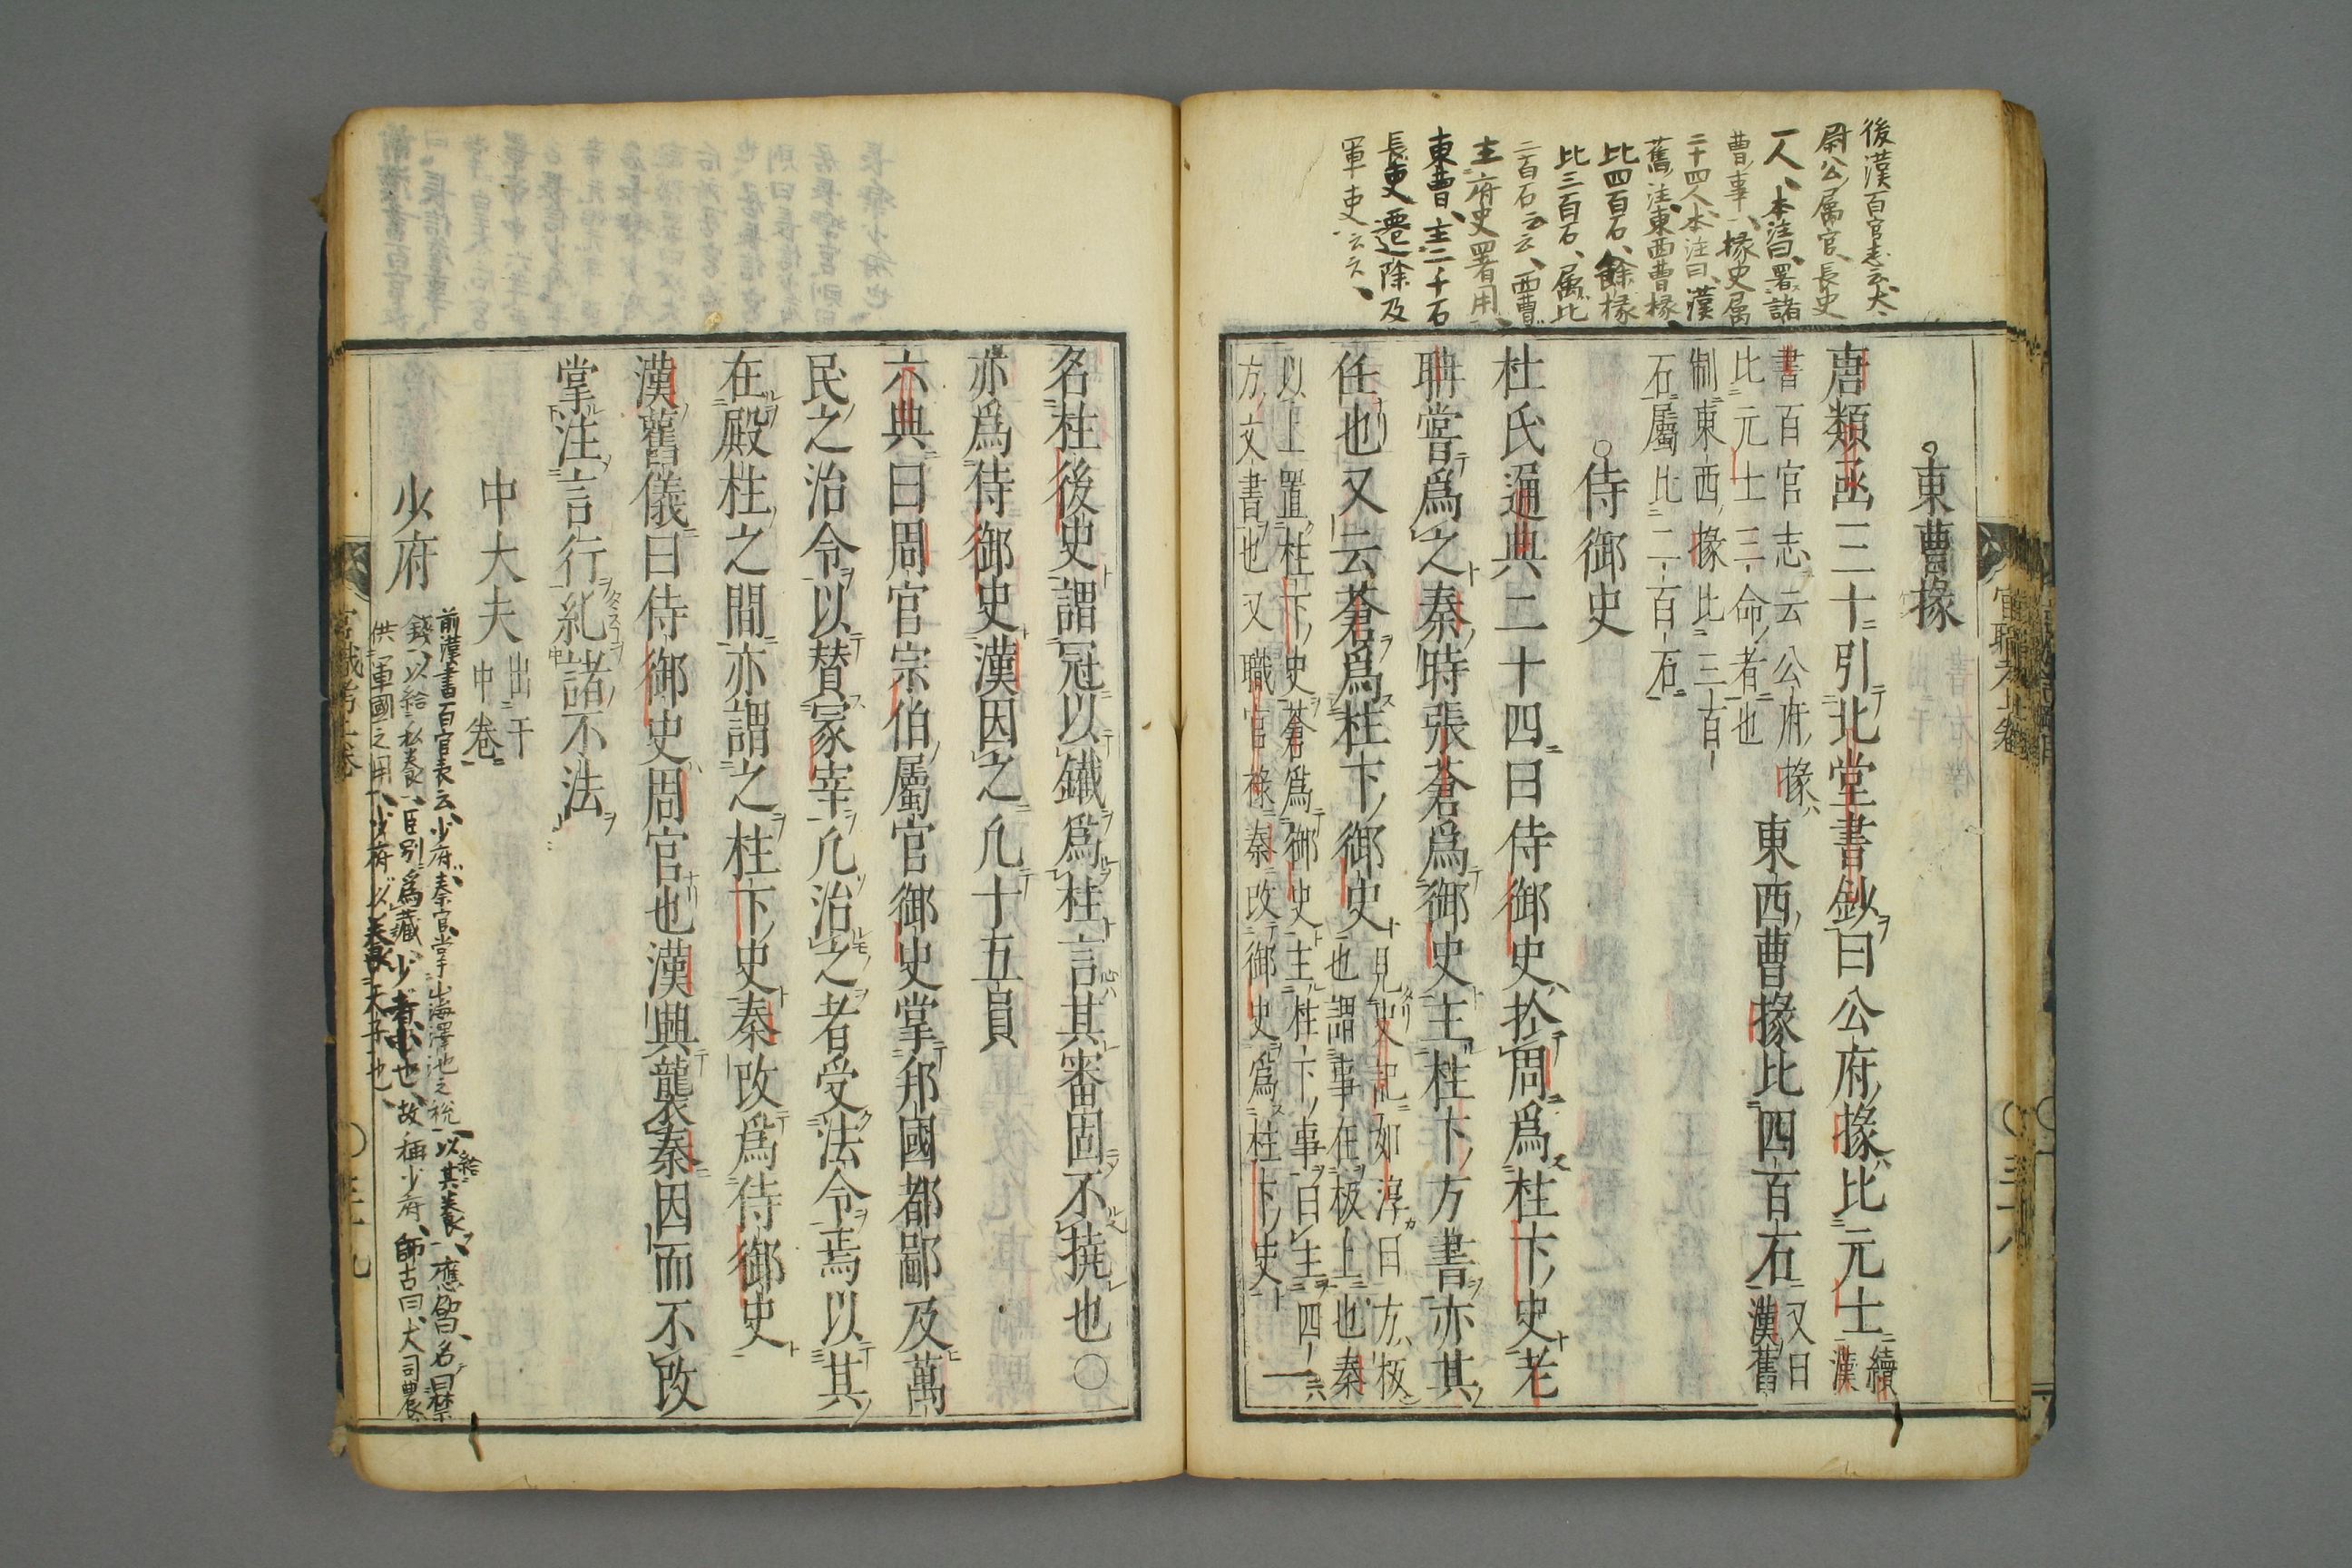 後漢百官志云大
尉公属官長史
一人本注曰署諸
曹事掾史属
二十四人本注曰漢
舊注東西曹掾
比四百石餘掾
比三百石属比
二百石云云西曹
主府史署用
東曹主二千石
長吏遷除及
軍吏云云
東曹掾
唐類函三十引北堂書鈔曰公府掾比元士續漢
書百官志云公府掾
比元士三命者也
東西曹掾比四百石又曰漢舊
制東西掾比三百
石屬比二百石
侍御史
杜氏通典二十四曰侍御史於周爲柱下史老
聃嘗爲之秦時張蒼爲御史主柱下方書亦其
任也又云蒼爲柱下御史見史記如淳曰方板
也謂事在板上也秦
以上置柱下史蒼爲御史主柱下事曰主四
方文書也又職官掾秦改御史爲柱下史一
名柱後史謂冠以鐵爲柱言其審固不撓也〇
亦爲侍御史漢因之凢十五員
六典曰周官宗伯屬官御史掌邦國都鄙及萬
民之治令以賛冢宰凢治之者受法令焉以其
在殿柱之間亦謂之柱下史秦改爲侍御史
漢舊儀曰侍御史周官也漢興襲秦因而不改
掌注言行糺諸不法
中大夫出于中卷
少府
前漢書百官表云少府秦官掌山海澤池之税以給其養應劭曰名曰禁
錢以給私養自別爲藏少者小也故稱少府師古曰大司農
供軍國之用少府以養天子也
官職考上卷
三十八
官職考上卷
三十九